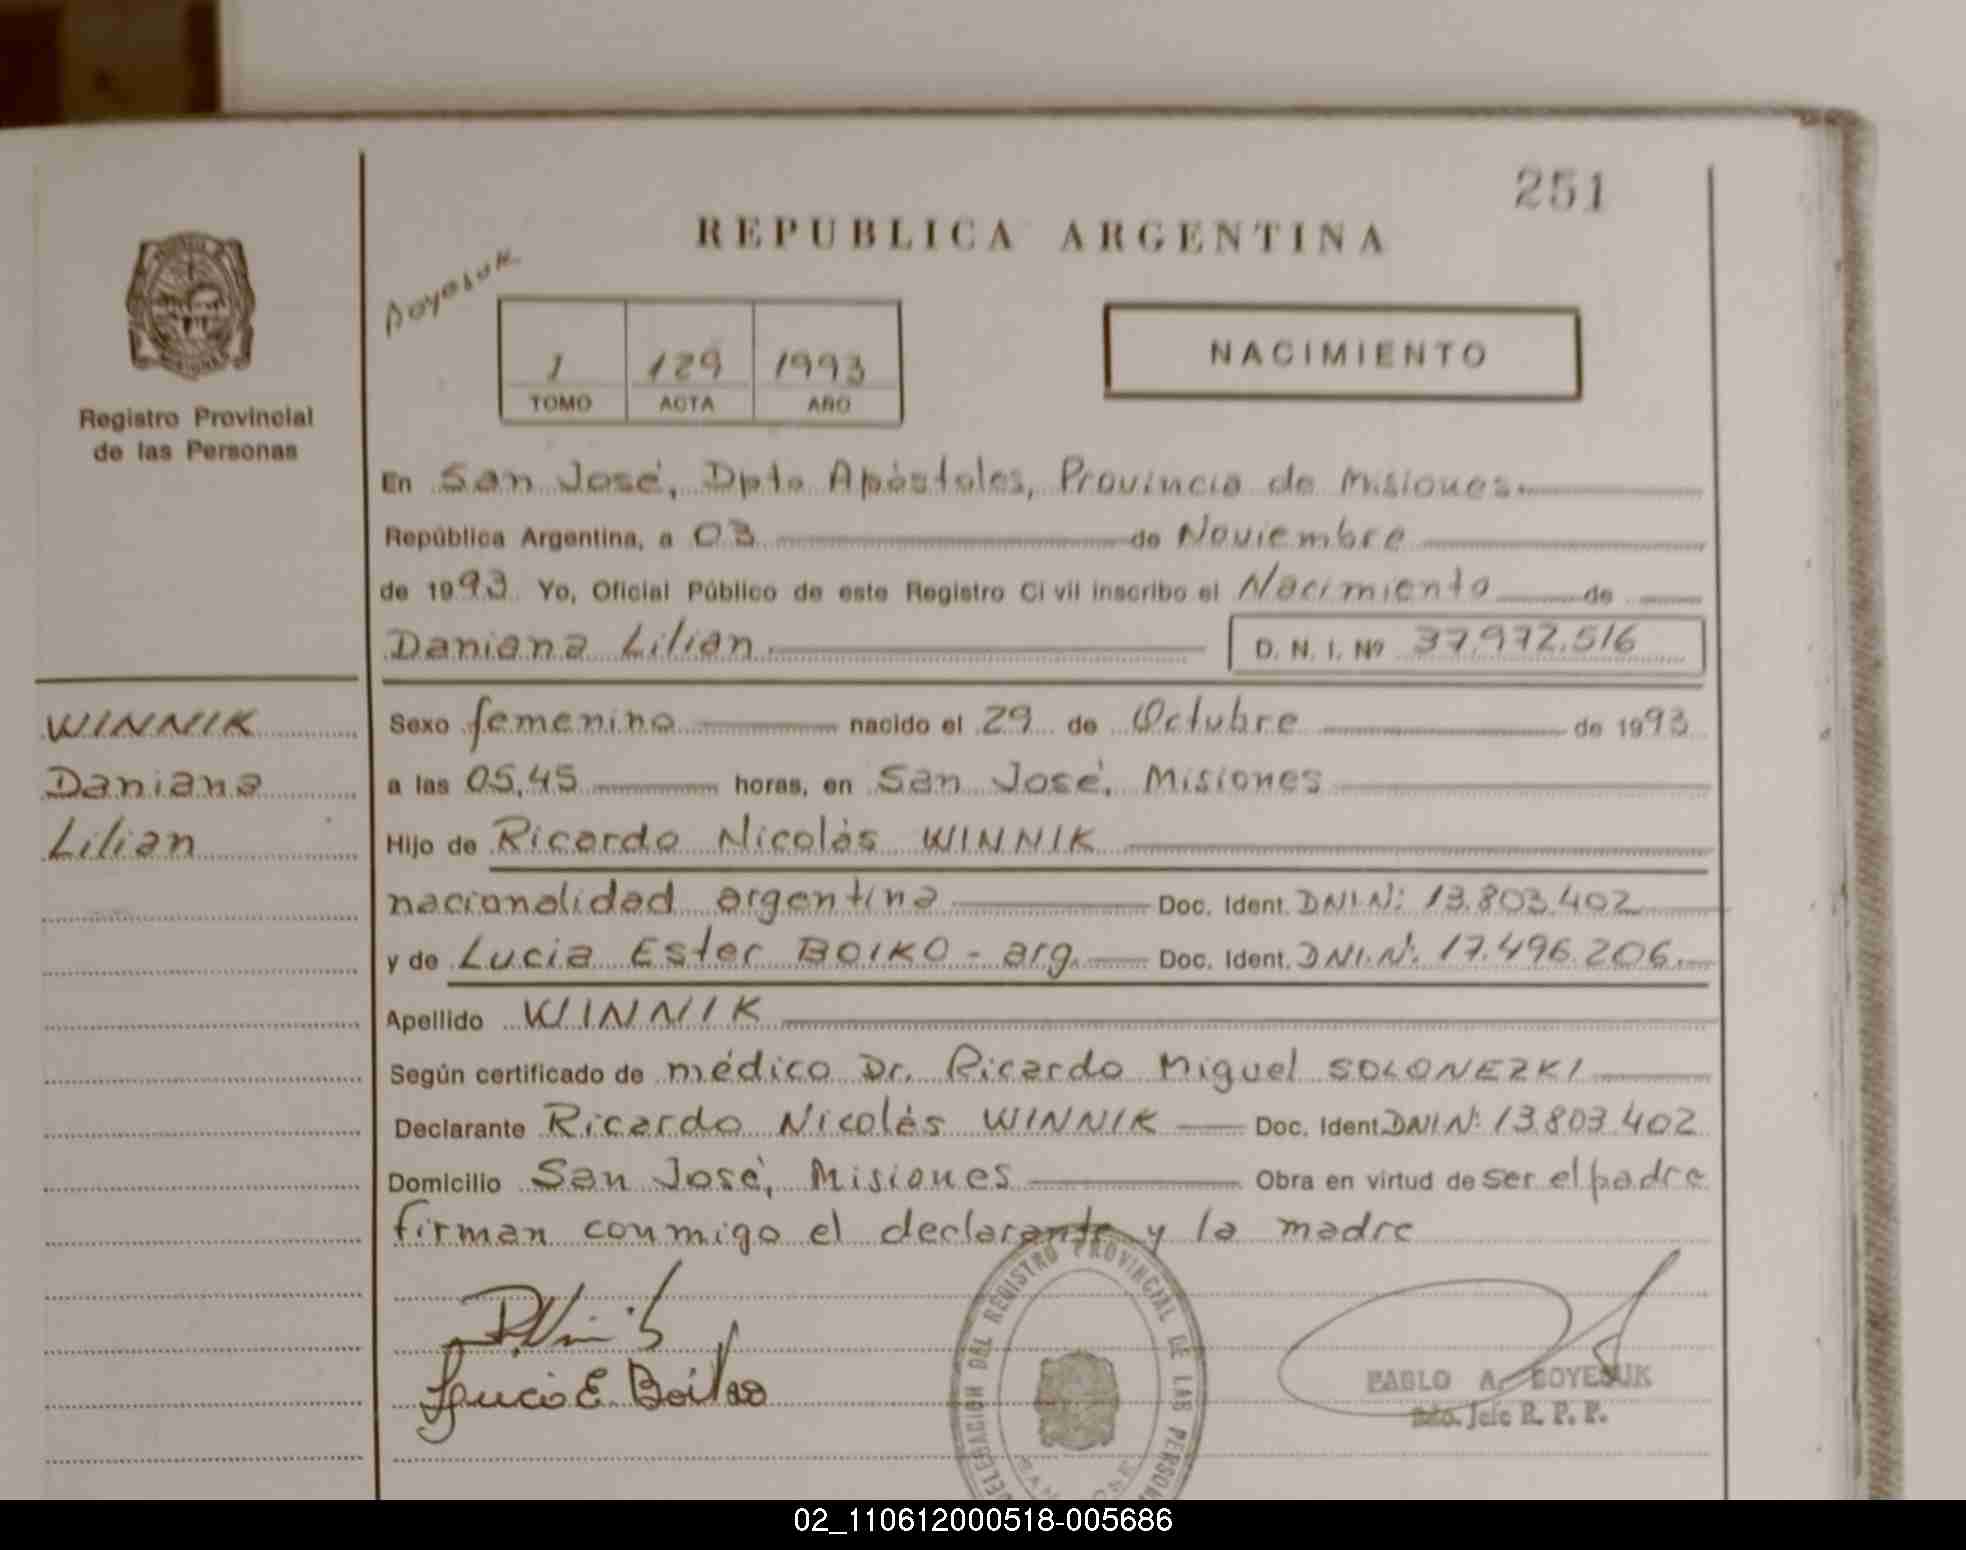 251
REPUBLICA ARGENTINA
Registro Provincial
de las Personas
1 129 1993
TOMO ACTA AÑO
NACIMIENTO
En San José, Dpto Apóstoles, Provincia de Misiones.
República Argentina, a 03 de Noviembre
de 1993 Yo, Oficial Público de este Registro Civil inscribo el Nacimiento de
Daniana Lilian D. N. I. Nº 37.972.516
WINNIK
Daniana
Lilian
Sexo femenino nacido el 29 de Octubre de 1993
a las 05,45 horas, en San José, Misiones
Hijo de Ricardo Nicolás WINNIK
nacionalidad argentina Doc. Ident. DNI.N: 13.803.402
y de Lucia Ester BOIKO - arg. Doc. Ident. DNI.Nº: 17.496.206.
Apellido WINNIK
Según certificado de médico Dr. Ricardo Miguel SOLONEZKI
Declarante Ricardo Nicolás WINNIK Doc. Ident DNI N: 13.803.402
Domicilio San José, Misiones Obra en virtud de ser el padre
firman conmigo el declarante y la madre
DELEGACION DEL REGISTRO PROVINCIAL DE LAS
PABLO A. BOYESUK
Jefe R. P. P.
02_110612000518-005686